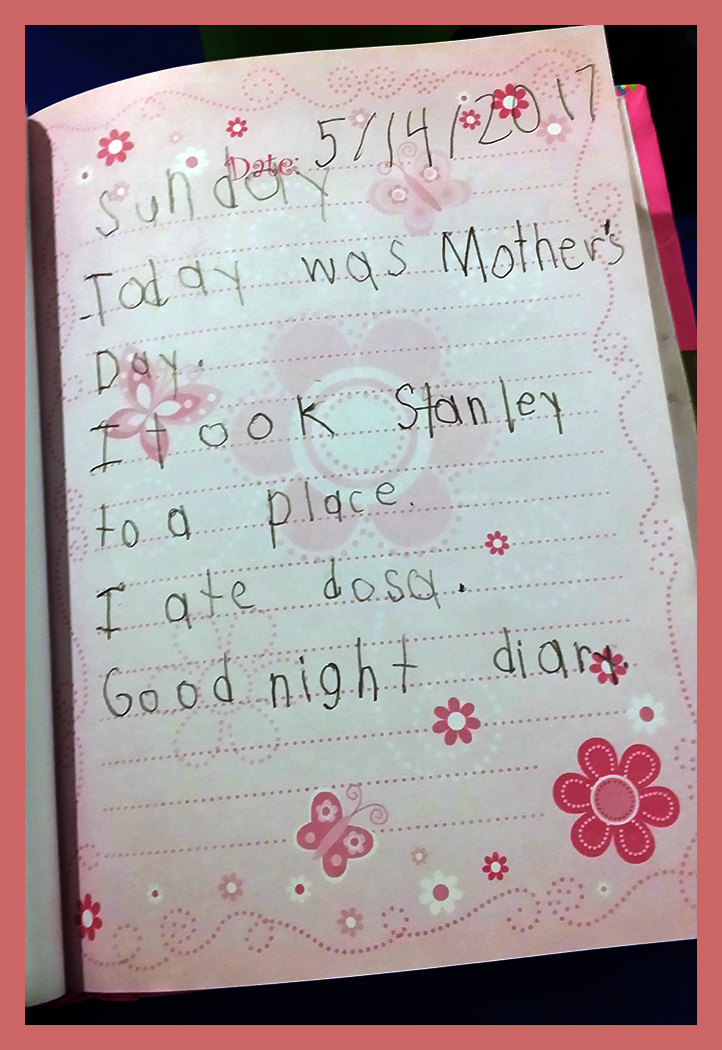 Date: 5/14/2017
Sunday
Today was Mother's
Day.
I took Stanley
to a place.
I ate dosa.
Good night diary.